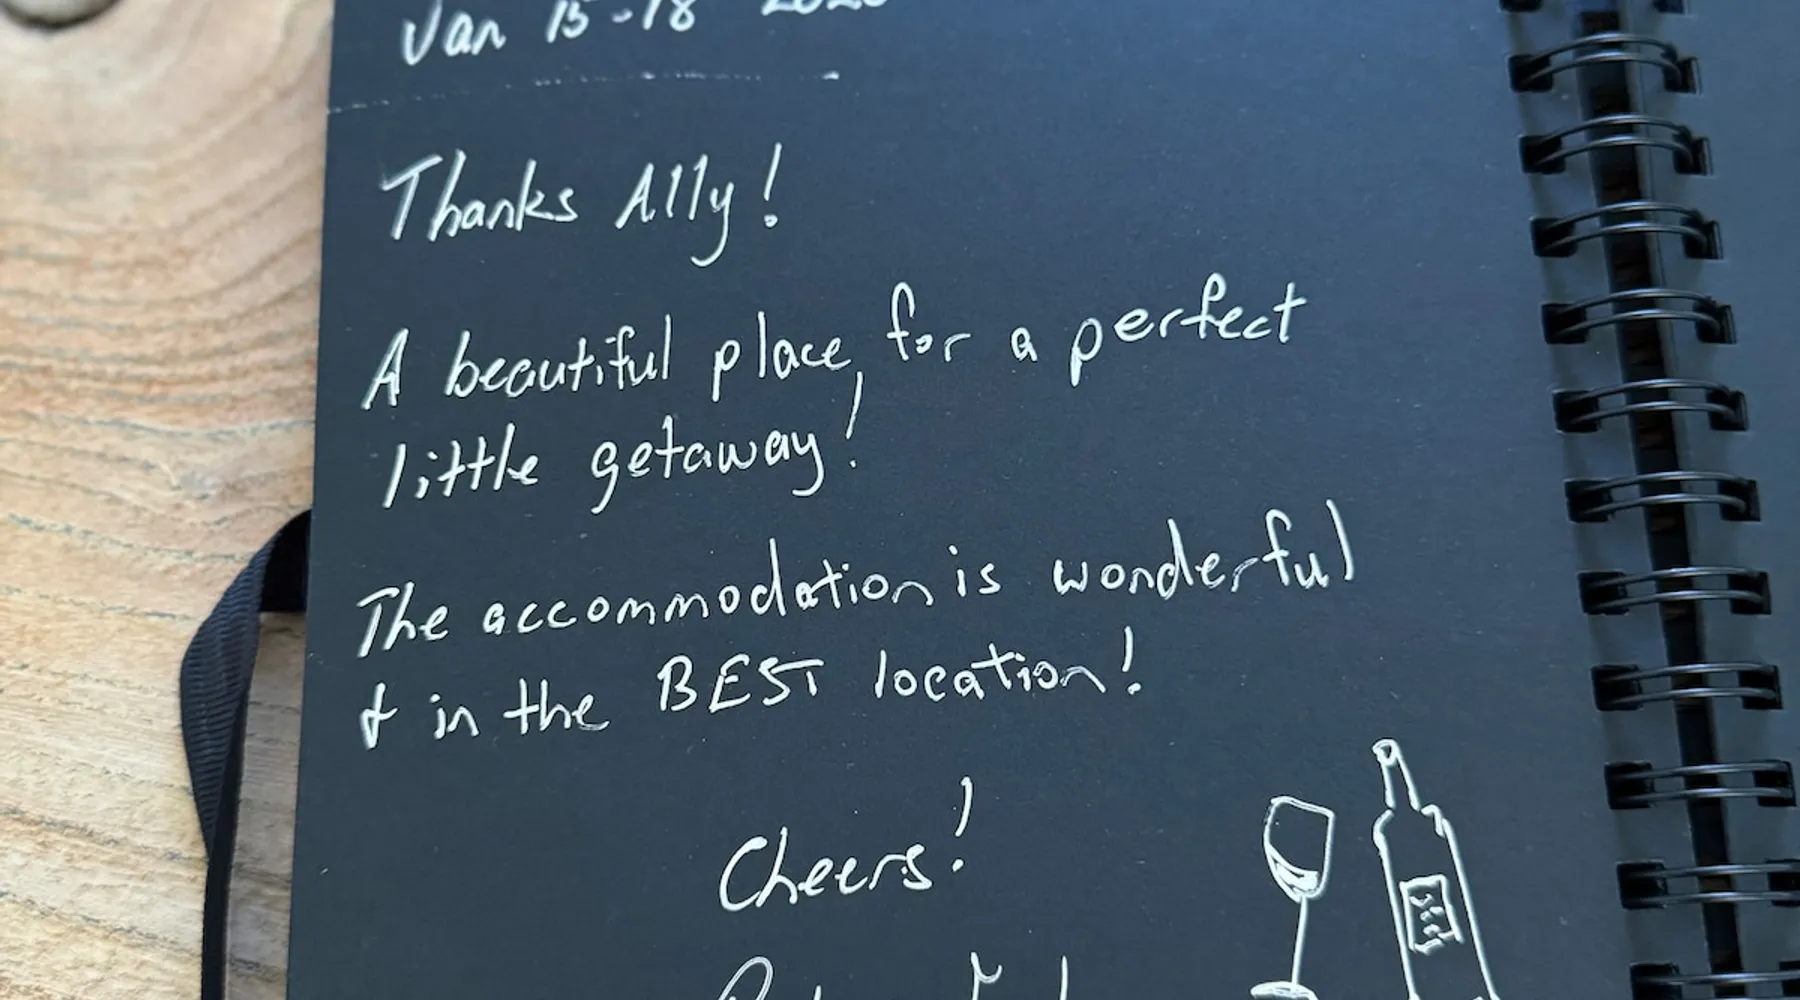 Jan 15-18
Thanks Ally!
A beautiful place, for a perfect
little getaway!
The accommodation is wonderful
& in the BEST location!
Cheers!